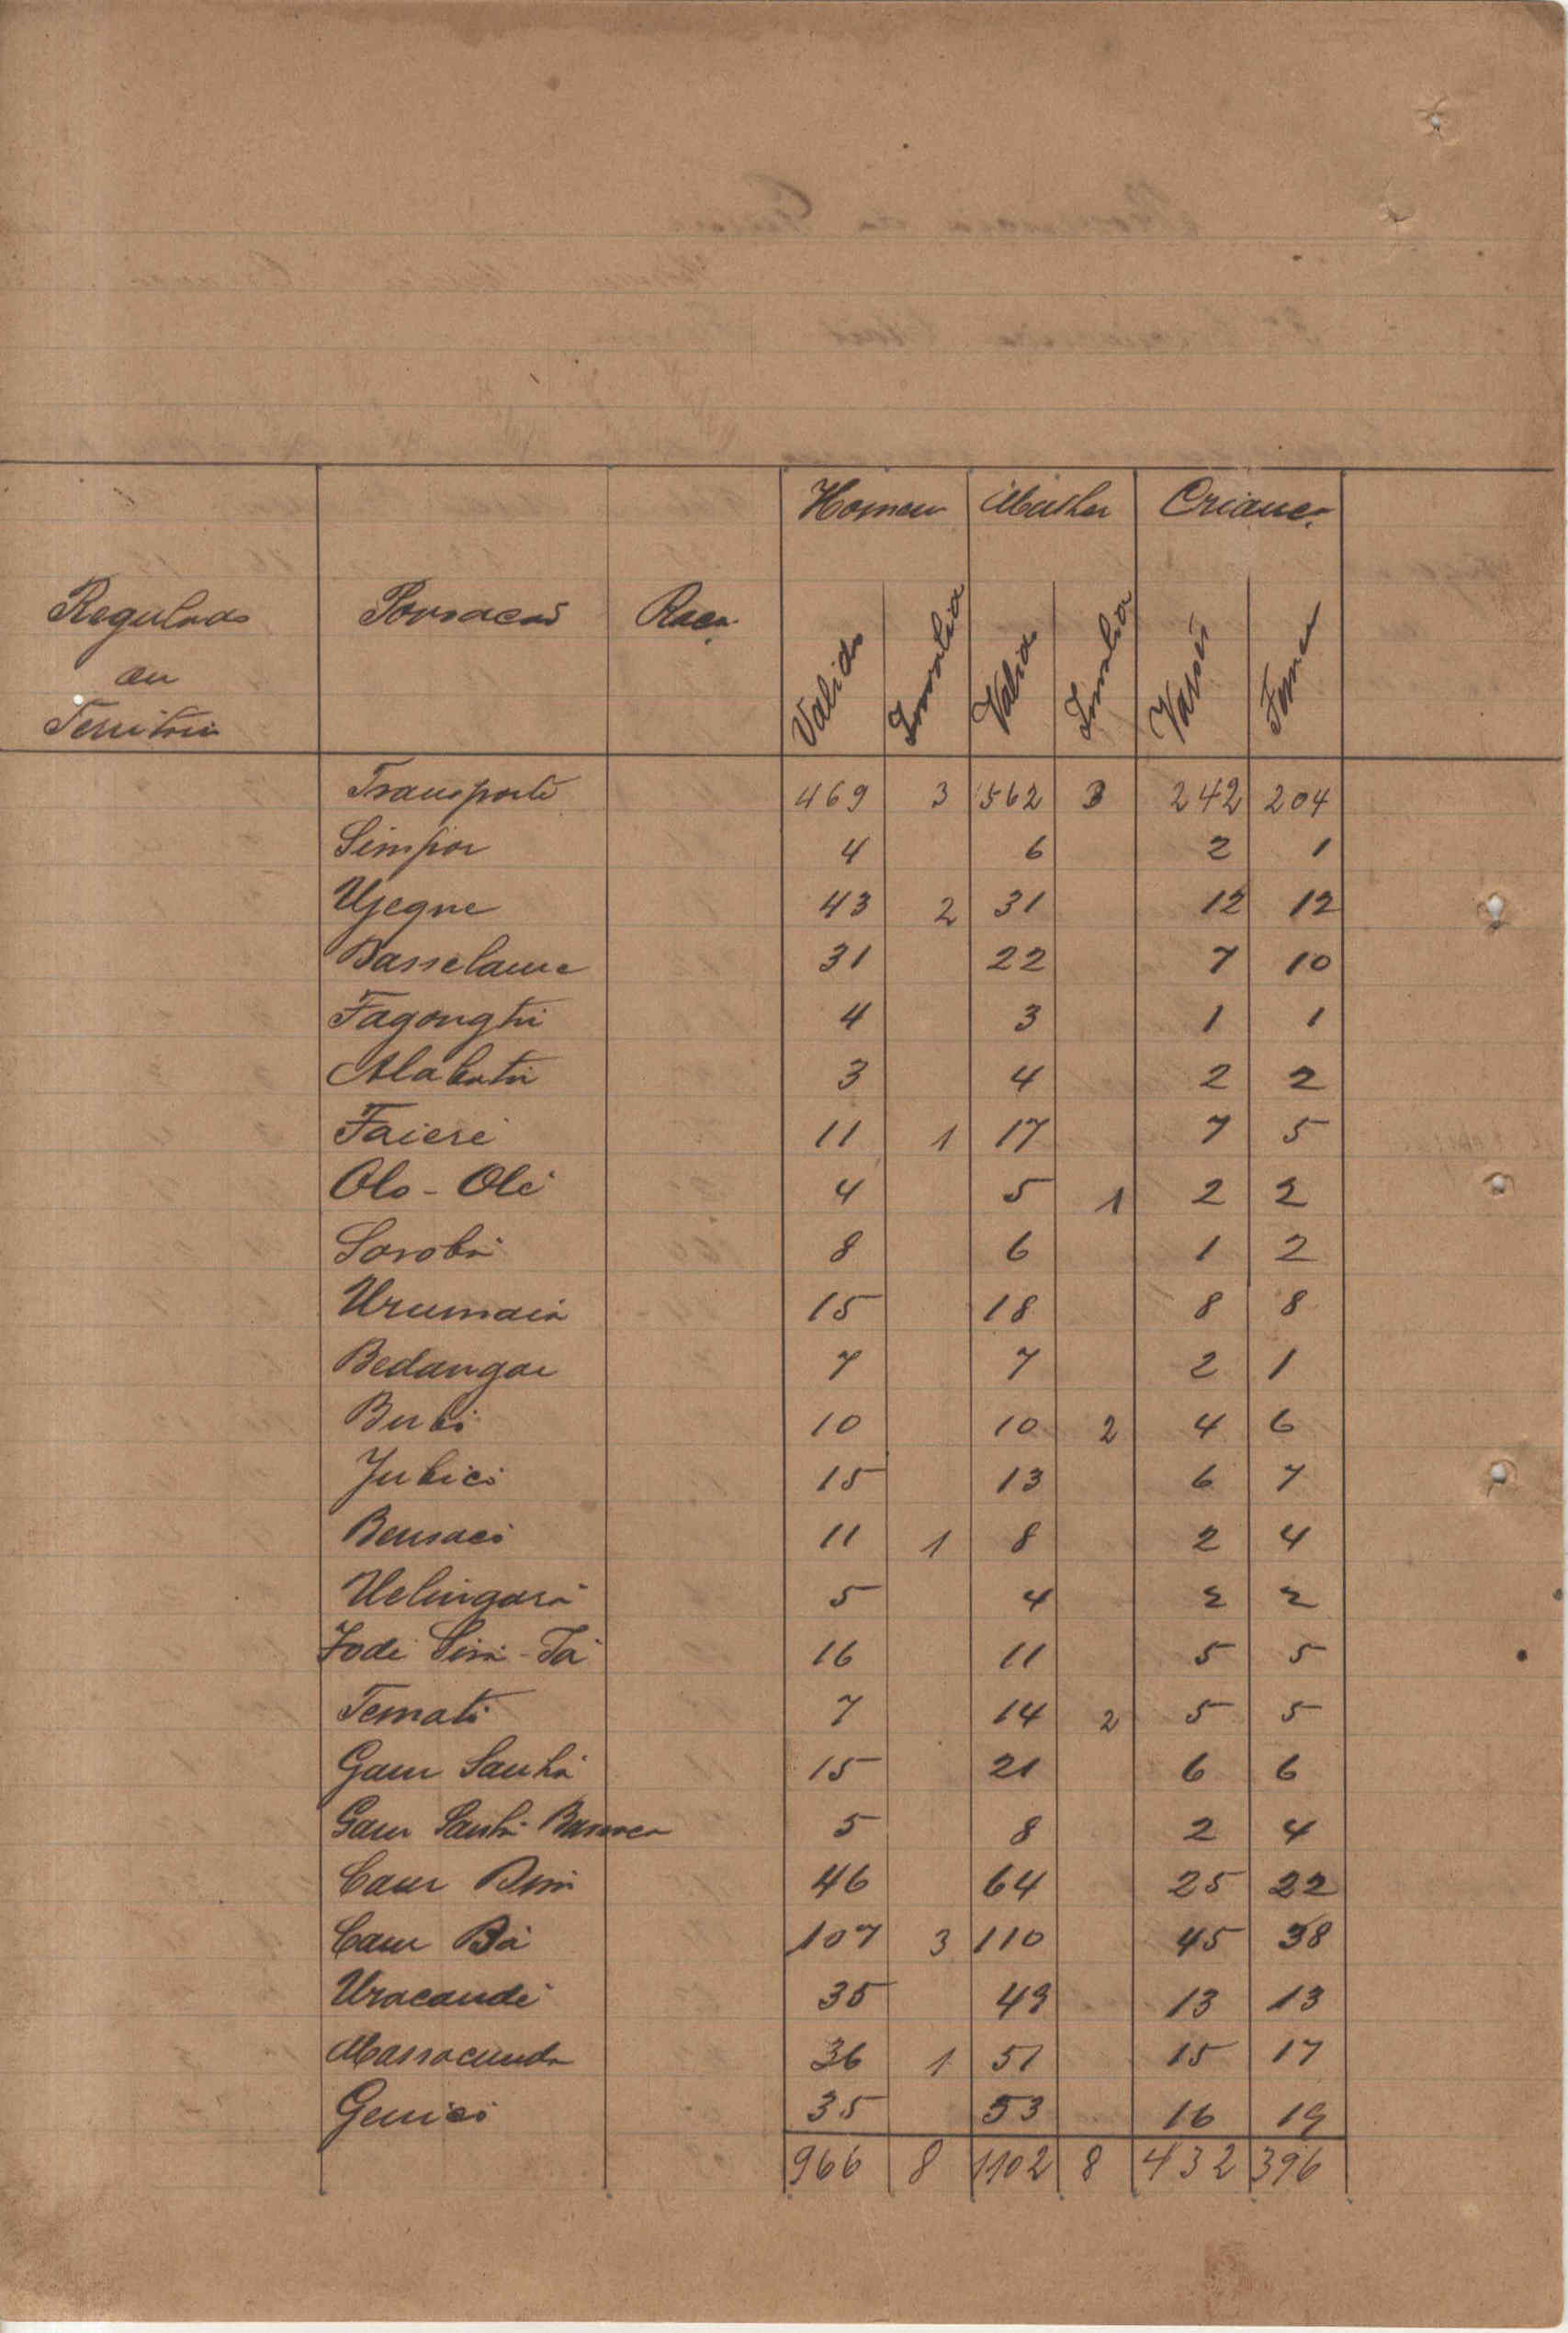 Homem Mulher Criança
Regulado Povoação Raça
ou
Territorio
Valido Invalido Valida Invalida Varões Femea
Transporte 469 3 562 3 242 204
Simpor 4 6 2 1
Ujeque 43 2 31 12 12
Basselame 31 22 7 10
Fagongtu 4 3 1 1
3 4 2 2
Faieré 11 1 17 7 5
Olo - Olé 4 5 1 2 2
Sorobá 8 6 1 2
Urumaiá 15 18 8 8
Bedangar 7 7 2 1
10 10 2 4 6
Jubicó 15 13 6 7
11 1 8 2 4
Uelingará 5 4 2 2
16 11 5 5
Temati 7 14 2 5 5
Gam Sanhá 15 21 6 6
Gam Sanhá 5 8 2 4
46 64 25 22
Caur Bá 107 3 110 45 38
Uracande 35 49 13 13
Massacunda 36 1 51 15 17
35 53 16 19
966 8 1102 8 432 396